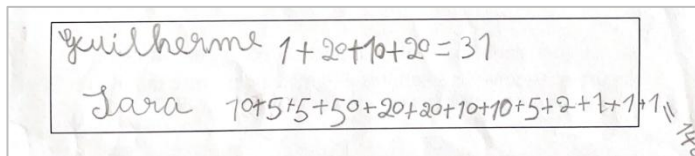 Guilherme 1+20+10+20=31
Sara 10+5+5+50+20+20+10+10+5+2+1+1+1=